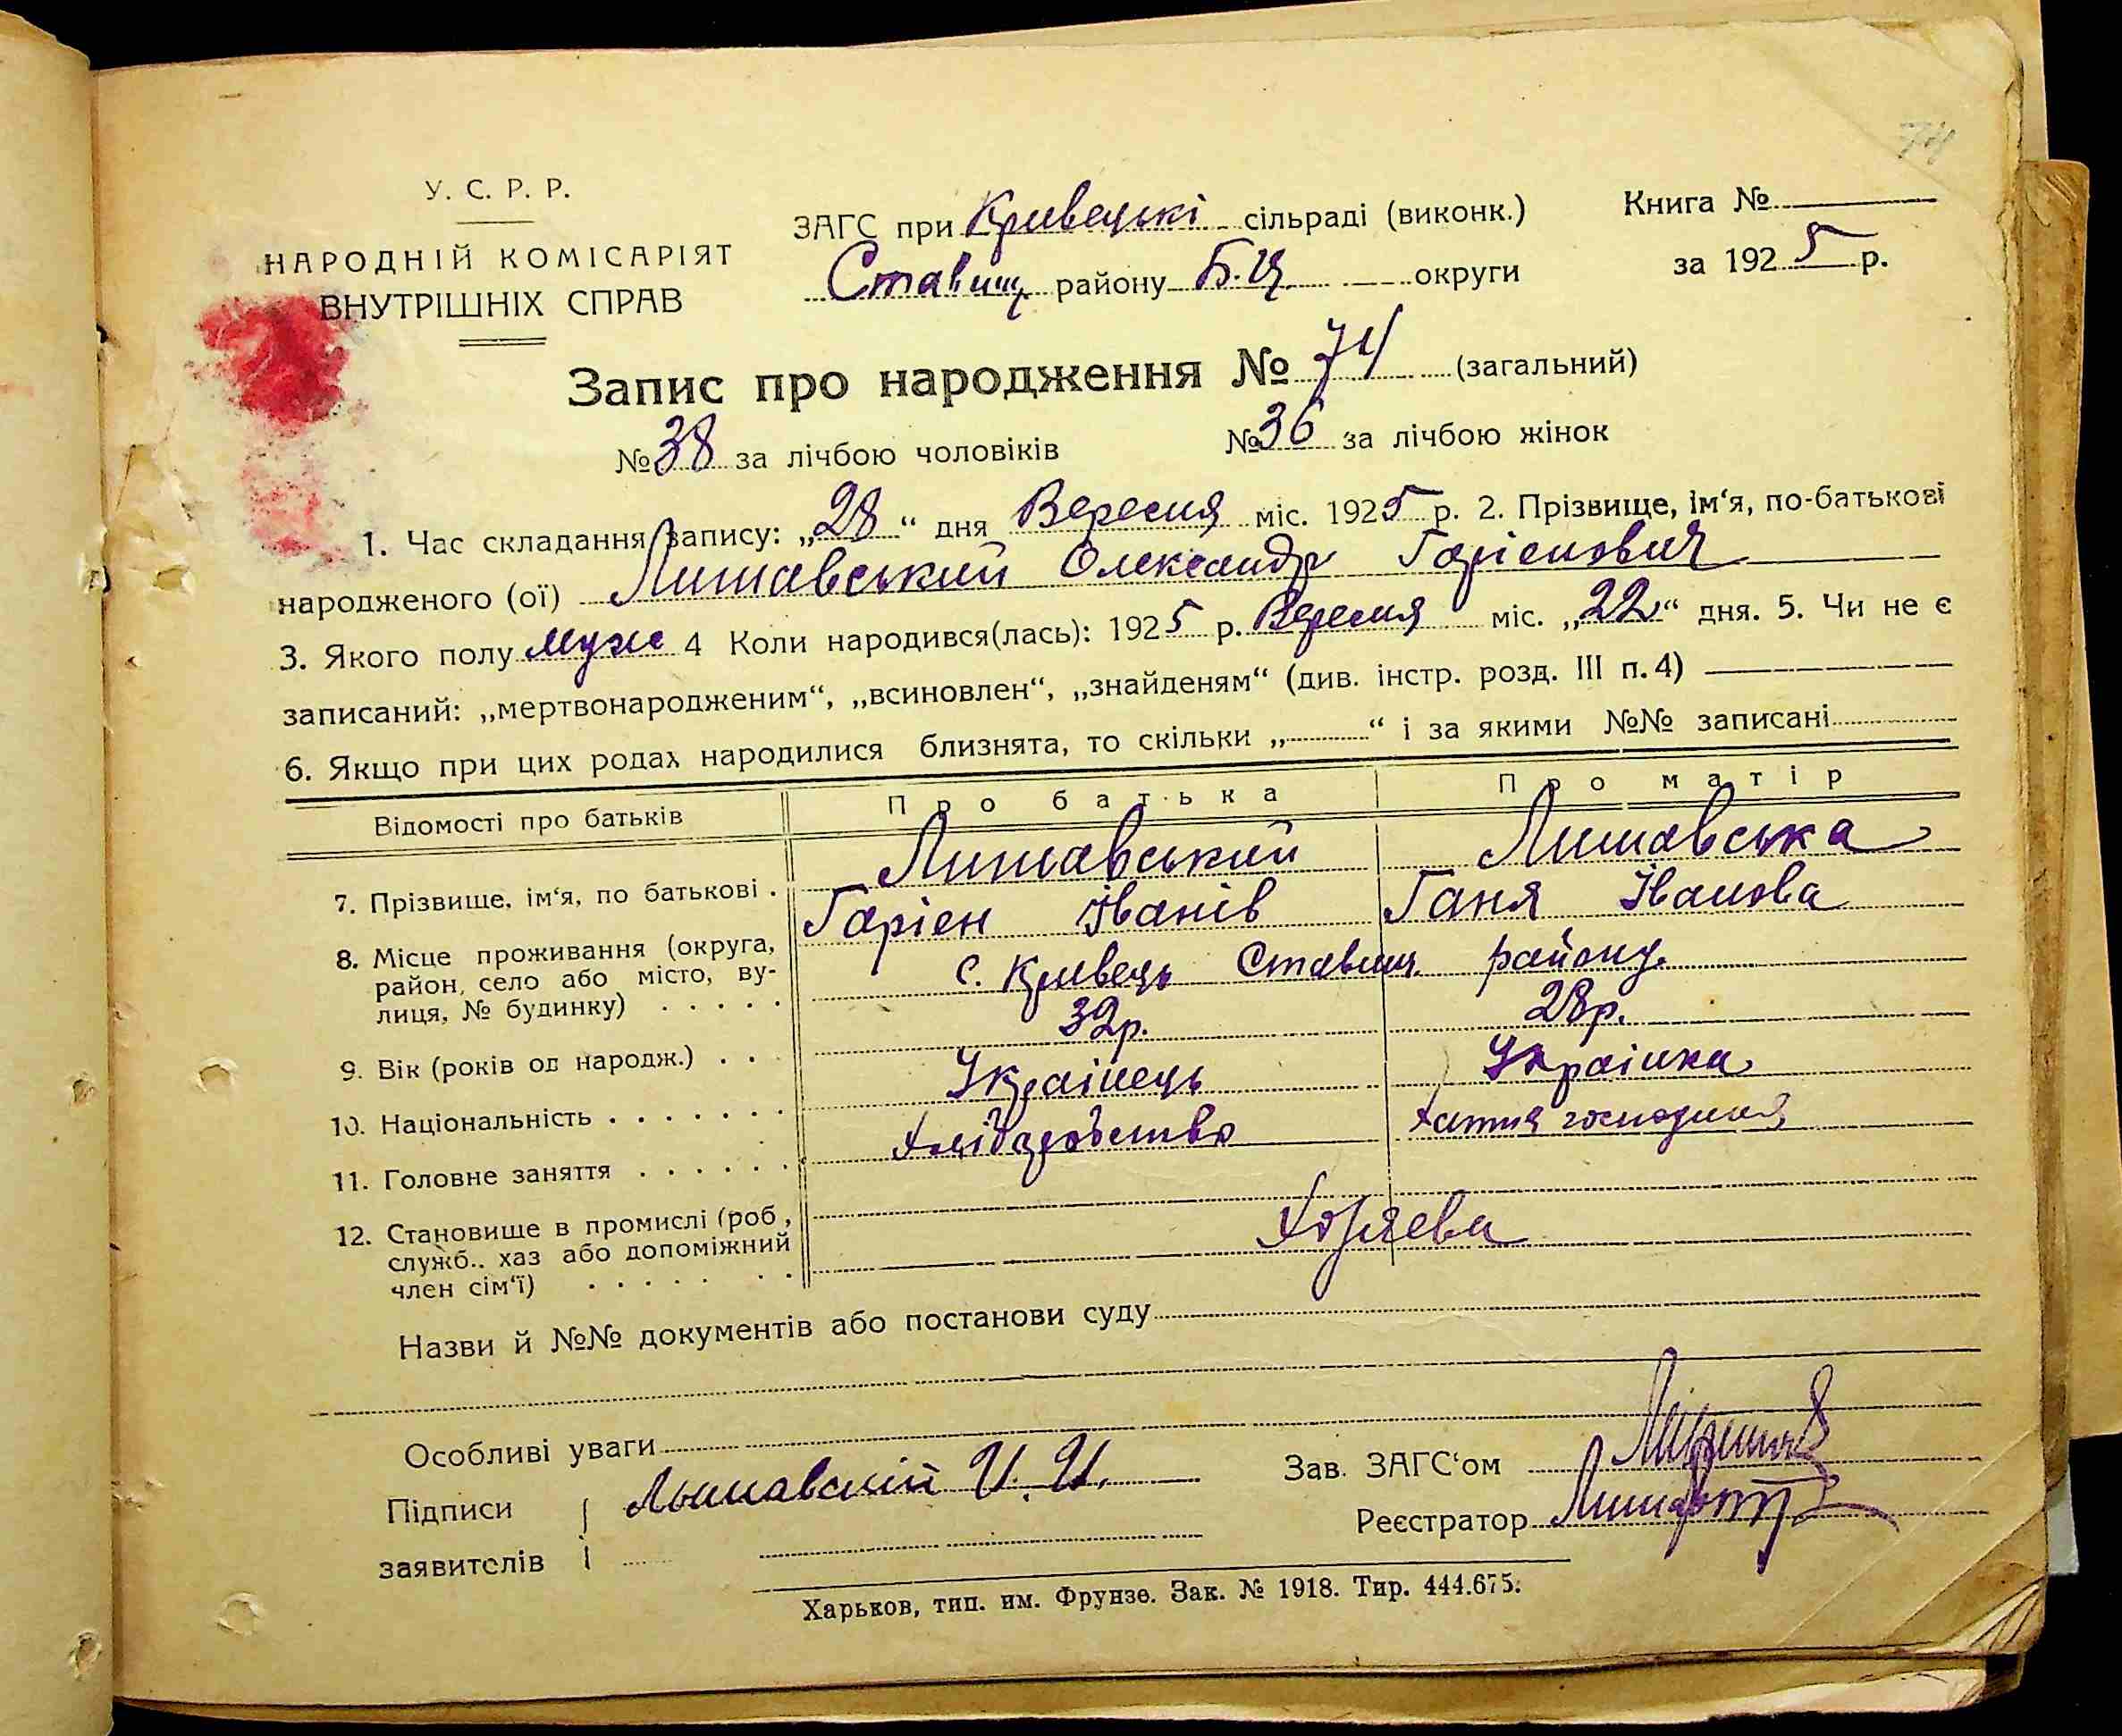 74
У. С. Р. Р.
НАРОДНІЙ КОМІСАРІЯТ
ВНУТРІШНІХ СПРАВ
ЗАГС при Кривецькі сільраді (виконк.)
Ставищ району Б.Ц. округи
Книга №
за 1925 р.
Запис про народження № 74 (загальний)
№ 38 за лічбою чоловіків № 36 за лічбою жінок
1. Час складання запису: „28“ дня Вересня міс. 1925 р. 2. Прізвище, ім‘я, по-батькові
народженого (ої) Лишавський Олександр Гаріенович
3. Якого полу муже 4 Коли народився(лась): 1925 р. Вересня міс. „22“ дня. 5. Чи не є
записаний: „мертвонародженим“, „всиновлен“, „знайденям“ (див. інстр. розд. III п. 4)
6. Якщо при цих родах народилися близнята, то скільки „ “ і за якими №№ записані
Відомості про батьків Про батька Про матір
Лишавський Лишавська
7. Прізвище, ім‘я, по батькові . Гаріен Іванів Ганя Іванова
8. Місце проживання (округа,
район, село або місто, ву-
лиця, № будинку) . . . . . с. Кривець Ставищ. району.
9. Вік (років од народж.) . . . 32р. 28р.
10. Національність . . . . . . . Украінець Украінка
11. Головне заняття . . . . . . Хлібаробство хатня господиня
12. Становище в промислі (роб.,
служб.. хаз або допоміжний
член сім‘ї) . . . . . . . Хозяева
Назви й №№ документів або постанови суду
Особливі уваги
Підписи
заявителів
Лышавский И. И.
Зав. ЗАГС‘ом
Реєстратор
Харьков, тип. им. Фрунзе. Зак. № 1918. Тир. 444.675.